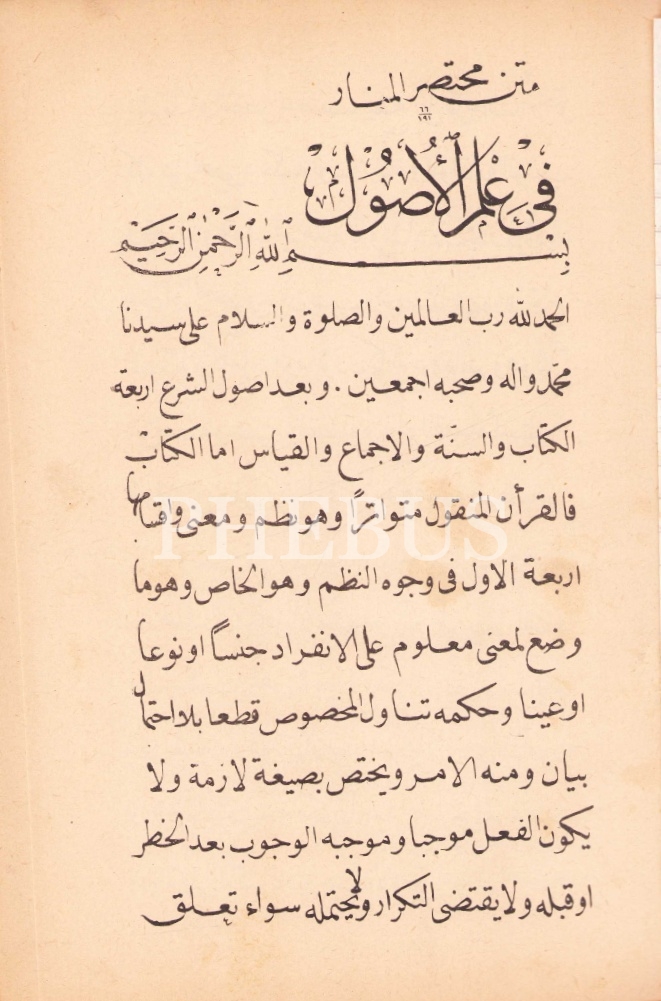 متن مختصر المنار
٦٦
١٩٢
فى علم الأصول
بسم الله الرحمن الرحيم
الحمد لله رب العالمين والصلوة والسلام على سيدنا
محمد واله وصحبه اجمعين . وبعد اصول الشرع اربعة
الكتاب والسنة والاجماع والقياس اما الكتاب
فالقرأن المنقول متواترًا وهو نظم ومعنى واقسامها
PHEBUS
اربعة الاول فى وجوه النظم وهو الخاص وهو ما
وضع لمعنى معلوم على الانفراد جنساً او نوعا
او عينا وحكمه تناول المخصوص قطعا بلا احتمال
بيان ومنه الامر ويختص بصيغة لازمة ولا
يكون الفعل موجبا وموجبه الوجوب بعد الحظر
او قبله ولا يقتضى التكرار ولا يحتمله سواء تعلق